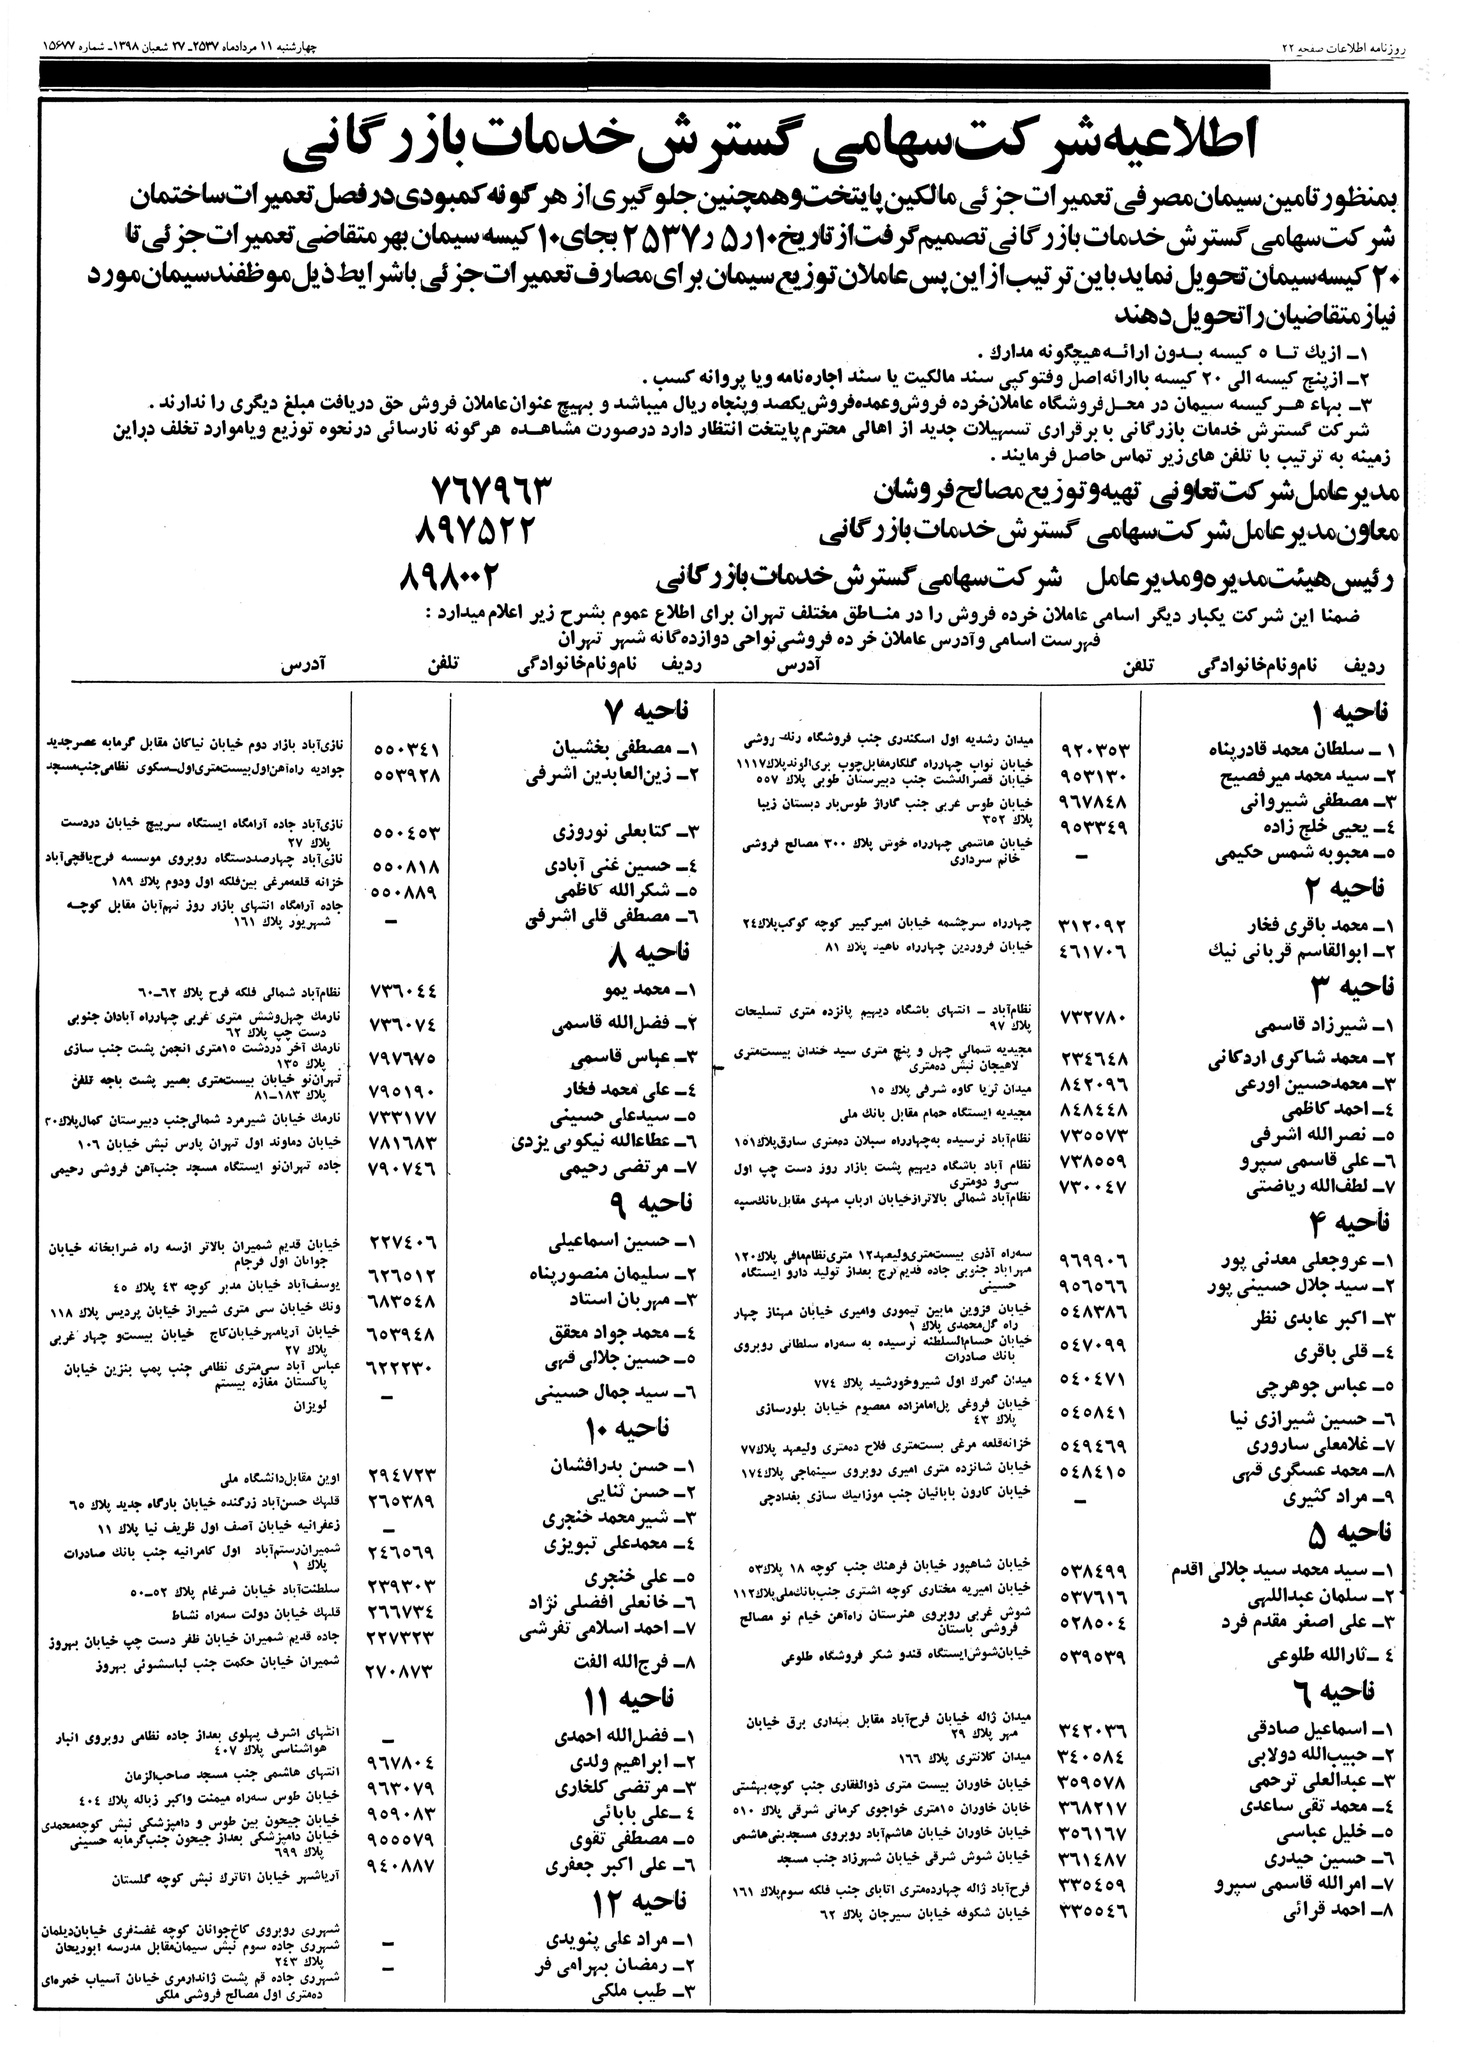 روزنامه اطلاعات صفحه ۲۲
چهارشنبه ۱۱ مردادماه ۲۵۳۷ـ ۲۷ شعبان ۱۳۹۸ـ شماره ۱۵۶۷۷
اطلاعیه شرکت سهامی گسترش خدمات بازرگانی
بمنظور تامین سیمان مصرفی تعمیرات جزئی مالکین پایتخت و همچنین جلوگیری از هرگونه کمبودی در فصل تعمیرات ساختمان
شرکت سهامی گسترش خدمات بازرگانی تصمیم گرفت از تاریخ ۱۰ر۵ر۲۵۳۷ بجای ۱۰ کیسه سیمان بهر متقاضی تعمیرات جزئی تا
۲۰ کیسه سیمان تحویل نماید باین ترتیب از این پس عاملان توزیع سیمان برای مصارف تعمیرات جزئی باشرایط ذیل موظفند سیمان مورد
نیاز متقاضیان را تحویل دهند
۱ـ ازیك تـا ۵ کیسه بـدون ارائه هیچگونه مدارك .
۲ـ ازپنج کیسه الی ۲۰ کیسه باارائه اصل وفتوکپی سند مالکیت یا سند اجاره‌نامه ویا پروانه کسب .
۳ـ بهاء هر کیسه سیمان در محل فروشگاه عاملان خرده فروش و عمده فروش یکصد و پنجاه ریال میباشد و بهیچ عنوان عاملان فروش حق دریافت مبلغ دیگری را ندارند .
شرکت گسترش خدمات بازرگانی با برقراری تسهیلات جدید از اهالی محترم پایتخت انتظار دارد درصورت مشاهده هرگونه نارسائی درنحوه توزیع ویاموارد تخلف دراین
زمینه به ترتیب با تلفن های زیر تماس حاصل فرمایند .
مدیرعامل شرکت تعاونی تهیه و توزیع مصالح فروشان ۷۶۷۹۶۳
معاون مدیرعامل شرکت سهامی گسترش خدمات بازرگانی ۸۹۷۵۲۲
رئیس هیئت مدیره و مدیرعامل شرکت سهامی گسترش خدمات بازرگانی ۸۹۸۰۰۲
ضمنا این شرکت یکبار دیگر اسامی عاملان خرده فروش را در منـاطق مختلف تهران برای اطلاع عموم بشرح زیر اعلام میدارد :
فهرست اسامی وآدرس عاملان خرده فروشی نواحی دوازده‌گانه شهر تهران
ردیف نام و نام خانوادگی تلفن آدرس ردیف نام و نام خانوادگی تلفن آدرس
ناحیه ۱
۱ ـ سلطان محمد قادرپناه ۹۲۰۳۵۳ میدان رشدیه اول اسکندری جنب فروشگاه رنك روشی
۲ـ سید محمد میرفصیح ۹۵۳۱۳۰ خیابان نواب چهارراه گلکار مقابل چوب بری الوند پلاك ۱۱۱۷
۳ـ مصطفی شیروانی ۹۶۷۸۴۸ خیابان قصرالدشت جنب دبیرستان طوبی پلاك ۵۵۷
۴ـ یحیی خلج زاده ۹۵۳۳۴۹ خیابان طوس غربی جنب گاراژ طوس‌بار دبستان زیبا
پلاك ۳۵۲
۵ـ محبوبه شمس حکیمی ـ خیابان هاشمی چهارراه خوش پلاك ۳۰۰ مصالح فروشی
خانم سرداری
ناحیه ۲
۱ـ محمد باقری فخار ۳۱۲۰۹۲ چهارراه سرچشمه خیابان امیرکبیر کوچه کوکب پلاك ۲۴
۲ـ ابوالقاسم قربانی نیك ۴۶۱۷۰۶ خیابان فروردین چهارراه ناهید پلاك ۸۱
ناحیه ۳
۱ـ شیرزاد قاسمی ۷۳۲۷۸۰ نظام‌آباد ـ انتهای باشگاه دیهیم پانزده متری تسلیحات
پلاك ۹۷
۲ـ محمد شاکری اردکانی ۲۳۴۶۴۸ مجیدیه شمالی چهل و پنج متری سید خندان بیست‌متری
لاهیجان نبش ده‌متری
۳ـ محمدحسین اورعی ۸۴۲۰۹۶ میدان ثریا کاوه شرفی پلاك ۱۵
۴ـ احمد کاظمی ۸۴۸۴۴۸ مجیدیه ایستگاه حمام مقابل بانك ملی
۵ـ نصرالله اشرفی ۷۳۵۵۷۳ نظام‌آباد نرسیده به چهارراه سبلان ده‌متری سارق پلاك ۱۵۱
۶ـ علی قاسمی سپرو ۷۳۸۵۵۹ نظام آباد باشگاه دیهیم پشت بازار روز دست چپ اول
سی و دومتری
۷ـ لطف‌الله ریاضتی ۷۳۰۰۴۷ نظام‌آباد شمالی بالاتر از خیابان ارباب مهدی مقابل بانك سپه
ناحیه ۴
۱ـ عروجعلی معدنی پور ۹۶۹۹۰۶ سه‌راه آذری بیست‌متری ولیعهد ۱۲ متری نظام مافی پلاك ۱۲۰
۲ـ سید جلال حسینی پور ۹۵۶۵۶۶ مهرآباد جنوبی جاده قدیم کرج بعداز تولید دارو ایستگاه
حسینی
۳ـ اکبر عابدی نظر ۵۴۸۳۸۶ خیابان قزوین مابین تیموری وامیری خیابان مهناز چهار
راه گل‌محمدی پلاك ۱
۴ـ قلی باقری ۵۴۷۰۹۹ خیابان حسام‌السلطنه نرسیده به سه‌راه سلطانی روبروی
بانك صادرات
۵ـ عباس جوهرچی ۵۴۰۴۷۱ میدان گمرك اول شیروخورشید پلاك ۷۷۴
۶ـ حسین شیرازی نیا ۵۴۵۸۴۱ خیابان فروغی پل امامزاده معصوم خیابان بلورسازی
پلاك ۴۳
۷ـ غلامعلی ساروری ۵۴۹۴۶۹ خزانه قلعه مرغی بست‌متری فلاح ده‌متری ولیعهد پلاك ۷۷
۸ـ محمد عسگری قهی ۵۴۸۴۱۵ خیابان شانزده متری امیری روبروی سینماجی پلاك ۱۷۴
۹ـ مراد کثیری ـ خیابان کارون بابائیان جنب موزائیك سازی بغدادچی
ناحیه ۵
۱ـ سید محمد سید جلالی اقدم ۵۳۸۴۹۹ خیابان شاهپور خیابان فرهنك جنب کوچه ۱۸ پلاك ۵۳
۲ـ سلمان عبداللهی ۵۳۷۶۱۶ خیابان امیریه مختاری کوچه اشتری جنب بانك ملی پلاك ۱۱۲
۳ـ علی اصغر مقدم فرد ۵۲۸۵۰۴ شوش غربی روبروی هنرستان راه‌آهن خیام نو مصالح
فروشی باستان
۴ ـ ثارالله طلوعی ۵۳۹۵۳۹ خیابان شوش ایستگاه قندو شکر فروشگاه طلوعی
ناحیه ۶
۱ـ اسماعیل صادقی ۳۴۲۰۳۶ میدان ژاله خیابان فرح‌آباد مقابل بهداری برق خیابان
مهر پلاك ۲۹
۲ـ حبیب‌الله دولابی ۳۴۰۵۸۴ میدان کلانتری پلاك ۱۶۶
۳ـ عبدالعلی ترحمی ۳۵۹۵۷۸ خیابان خاوران بیست متری ذوالفقاری جنب کوچه بهشتی
۴ـ محمد تقی ساعدی ۳۶۸۲۱۷ خابان خاوران ۱۵متری خواجوی کرمانی شرقی پلاك ۵۱۰
۵ـ خلیل عباسی ۳۵۶۱۶۷ خیابان خاوران خیابان هاشم‌آباد روبروی مسجد بنی‌هاشمی
۶ـ حسین حیدری ۳۶۱۴۸۷ خیابان شوش شرقی خیابان شهرزاد جنب مسجد
۷ـ امرالله قاسمی سپرو ۳۳۵۴۵۹ فرح‌آباد ژاله چهارده‌متری اتابای جنب فلکه سوم پلاك ۱۶۱
۸ـ احمد قرائی ۳۳۵۵۴۶ خیابان شکوفه خیابان سیرجان پلاك ۶۲
ناحیه ۷
۱ـ مصطفی بخشیان ۵۵۰۳۴۱ نازی‌آباد بازار دوم خیابان نیاکان مقابل گرمابه عصر جدید
۲ـ زین‌العابدین اشرفی ۵۵۳۹۲۸ جوادیه راه‌آهن اول بیست‌متری اول ـ سکوی نظامی جنب مسجد
۳ـ کتابعلی نوروزی ۵۵۰۴۵۳ نازی‌آباد جاده آرامگاه ایستگاه سرپیچ خیابان دردست
پلاك ۲۷
۴ـ حسین غنی آبادی ۵۵۰۸۱۸ نازی‌آباد چهارصددستگاه روبروی موسسه فرح یاقچی‌آباد
۵ـ شکرالله کاظمی ۵۵۰۸۸۹ خزانه قلعه‌مرغی بین فلکه اول ودوم پلاك ۱۸۹
۶ـ مصطفی قلی اشرفی ـ جاده آرامگاه انتهای بازار روز نهم‌آبان مقابل کوچـه
شهریور پلاك ۱۶۱
ناحیه ۸
۱ـ محمد یمو ۷۳۶۰۴۴ نظام‌آباد شمالی فلکه فرح پلاك ۶۲ـ۶۰
۲ـ فضل‌الله قاسمی ۷۳۶۰۷۴ نارمك چهل‌وشش متری غربی چهارراه آبادان جنوبی
دست چپ پلاك ۶۲
۳ـ عباس قاسمی ۷۹۷۶۷۵ نارمك آخر دردشت ۱۵متری انجمن پشت جنب سازی
پلاك ۱۳۵
۴ـ علی محمد فخار ۷۹۵۱۹۰ تهران‌نو خیابان بیست‌متری بصیر پشت باجه تلفن
پلاك ۱۸۳ـ۸۱
۵ـ سیدعلی حسینی ۷۳۳۱۷۷ نارمك خیابان شیرمرد شمالی جنب دبیرستان کمال پلاك ۲۰
۶ـ عطاءالله نیکوبی یزدی ۷۸۱۶۸۳ خیابان دماوند اول تهران پارس نبش خیابان ۱۰۶
۷ـ مرتضی رحیمی ۷۹۰۷۴۶ جاده تهران‌نو ایستگاه مسجد جنب آهن فروشی رحیمی
ناحیه ۹
۱ـ حسین اسماعیلی ۲۲۷۴۰۶ خیابان قدیم شمیران بالاتر ازسه راه ضرابخانه خیابان
جوانان اول فرجام
۲ـ سلیمان منصورپناه ۶۲۶۵۱۲ یوسف‌آباد خیابان مدبر کوچه ۴۳ پلاك ۴۵
۳ـ مهربان استاد ۶۸۳۵۴۸ ونك خیابان سی متری شیراز خیابان پردیس پلاك ۱۱۸
۴ـ محمد جواد محقق ۶۵۳۹۴۸ خیابان آریامهر خیابان کاج خیابان بیست‌و چهار غربی
پلاك ۲۷
۵ـ حسین جلالی قهی ۶۲۲۲۳۰ عباس آباد سی‌متری نظامی جنب پمپ بنزین خیابان
پاکستان مغازه بیستم
۶ـ سید جمال حسینی ـ لویزان
ناحیه ۱۰
۱ـ حسن بدرافشان ۲۹۴۷۲۳ اوین مقابل دانشگاه ملی
۲ـ حسن ثنایی ۲۶۵۳۸۹ قلهك حسن‌آباد زرگنده خیابان بارگاه جدید پلاك ۶۵
۳ـ شیرمحمد خنجری ـ زعفرانیه خیابان آصف اول ظریف نیا پلاك ۱۱
۴ـ محمدعلی تبویزی ۲۴۶۵۶۹ شمیران رستم‌آباد اول کامرانیه جنب بانك صادرات
پلاك ۱
۵ـ علی خنجری ۲۳۹۳۰۳ سلطنت‌آباد خیابان ضرغام پلاك ۵۲ـ۵۰
۶ـ خانعلی افضلی نژاد ۲۶۶۷۳۴ قلهك خیابان دولت سه‌راه نشاط
۷ـ احمد اسلامی تفرشی ۲۲۷۳۲۳ جاده قدیم شمیران خیابان ظفر دست چپ خیابان بهروز
۸ـ فرج‌الله الفت ۲۷۰۸۷۳ شمیران خیابان حکمت جنب لباسشوئی بهروز
ناحیه ۱۱
۱ـ فضل‌الله احمدی ـ انتهای اشرف پهلوی بعداز جاده نظامی روبروی انبار
هواشناسی پلاك ۴۰۷
۲ـ ابراهیم ولدی ۹۶۷۸۰۴ انتهای هاشمی جنب مسجد صاحب‌الزمان
۳ـ مرتضی کلخاری ۹۶۳۰۷۹ خیابان طوس سه‌راه میمنت واکبر زباله پلاك ۴۰۴
۴ ـ علی بابائی ۹۵۹۰۸۳ خیابان جیحون بین طوس و دامپزشکی نبش کوچه محمدی
۵ـ مصطفی تقوی ۹۵۵۵۷۹ خیابان دامپزشکی بعداز جیحون جنب گرمابه حسینی
پلاك ۶۹۹
۶ـ علی اکبر جعفری ۹۴۰۸۸۷ آریاشهر خیابان اتاترك نبش کوچه گلستان
ناحیه ۱۲
۱ـ مراد علی پنویدی ـ شهرری روبروی کاخ جوانان کوچه غضنفری خیابان دیلمان
۲ـ رمضان بهرامی فر ـ شهرری جاده سوم نبش سیمان مقابل مدرسه ابوریحان
پلاك ۲۴۳
۳ـ طیب ملکی شهرری جاده قم پشت ژاندارمری خیابان آسیاب خمره‌ای
ده‌متری اول مصالح فروشی ملکی